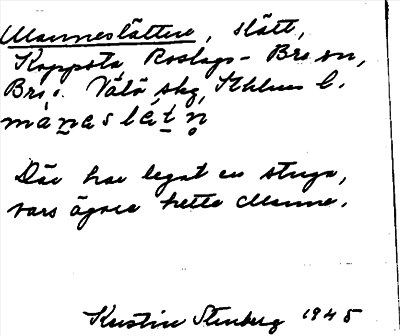 Manneslätten, slätt,
Koppsta, Roslags-Bro sn,
Bro o. Vätö skg, Sthlms l.
mànaslét̠n̥
Där har legat en stuga,
vars ägare hette Manne.
Kerstin Stenberg 1945